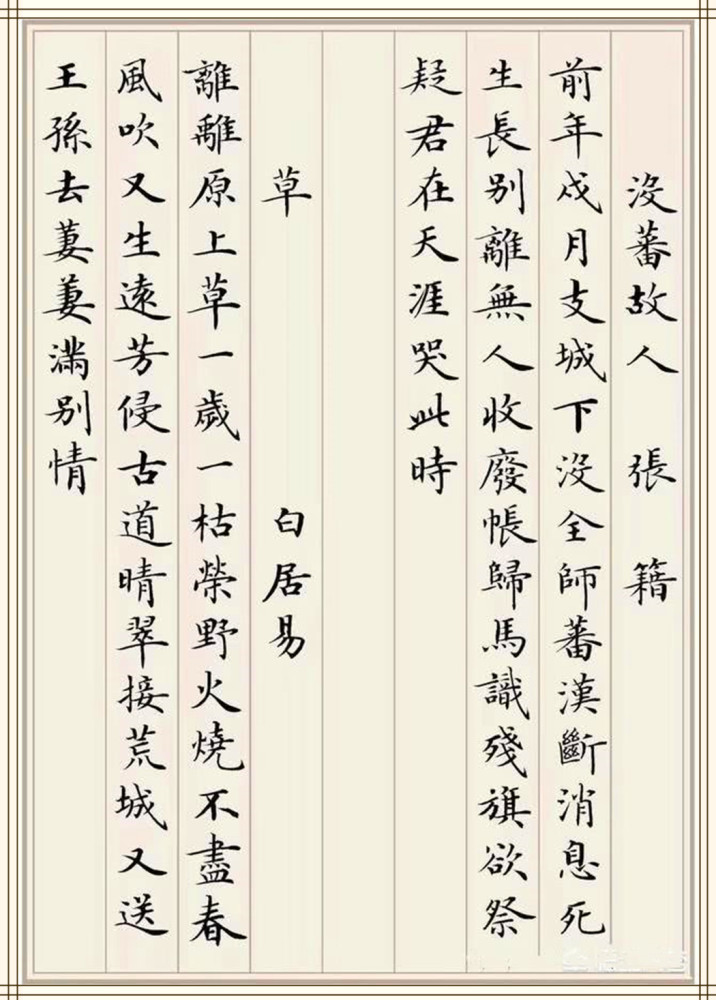 没蕃故人 張籍
前年戍月支城下没全師蕃漢斷消息死
生長别離無人收廢帳歸馬識殘旗欲祭
疑君在天涯哭此時
草 白居易
離離原上草一歲一枯榮野火燒不盡春
風吹又生遠芳侵古道晴翠接荒城又送
王孫去萋萋滿别情